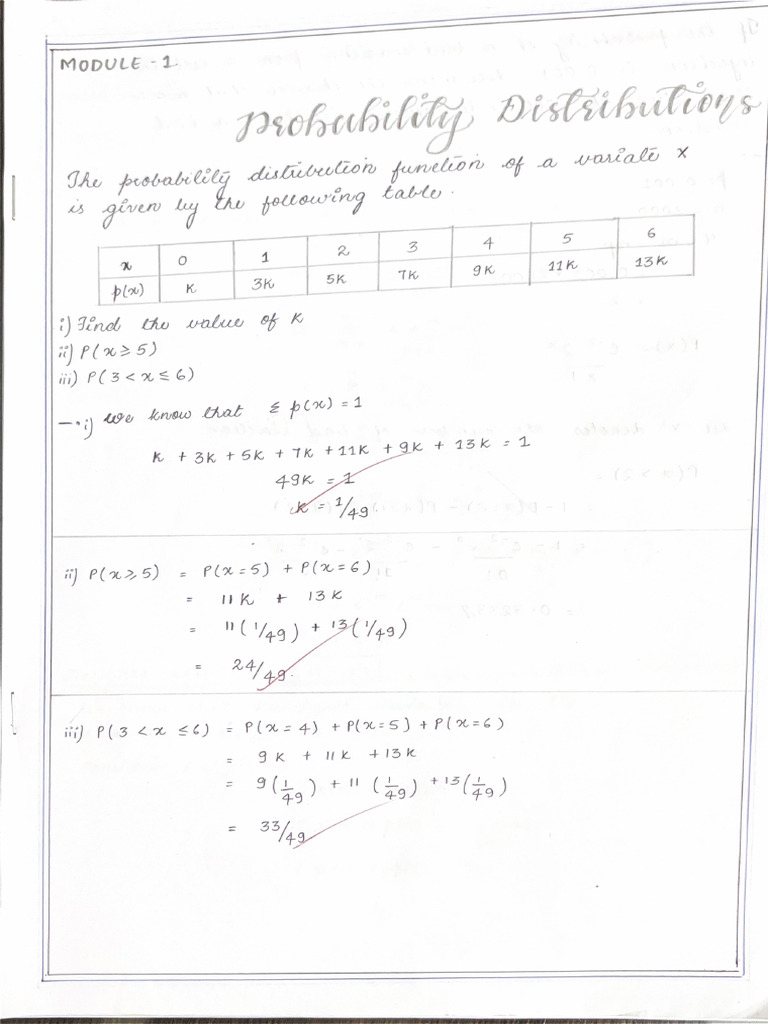 MODULE - 1
Probability Distributions
The probability distribution function of a variate X
is given by the following table.
x 0 1 2 3 4 5 6
p(x) K 3K 5K 7K 9K 11K 13K
i) Find the value of K
ii) P(x ≥ 5)
iii) P(3 < x ≤ 6)
→ i) We know that Σ p(x) = 1
K + 3K + 5K + 7K + 11K + 9K + 13K = 1
49K = 1
K = 1/49
ii) P(x ≥ 5) = P(x = 5) + P(x = 6)
= 11K + 13K
= 11(1/49) + 13(1/49)
= 24/49.
iii) P(3 < x ≤ 6) = P(x = 4) + P(x = 5) + P(x = 6)
= 9K + 11K + 13K
= 9(1/49) + 11(1/49) + 13(1/49)
= 33/49